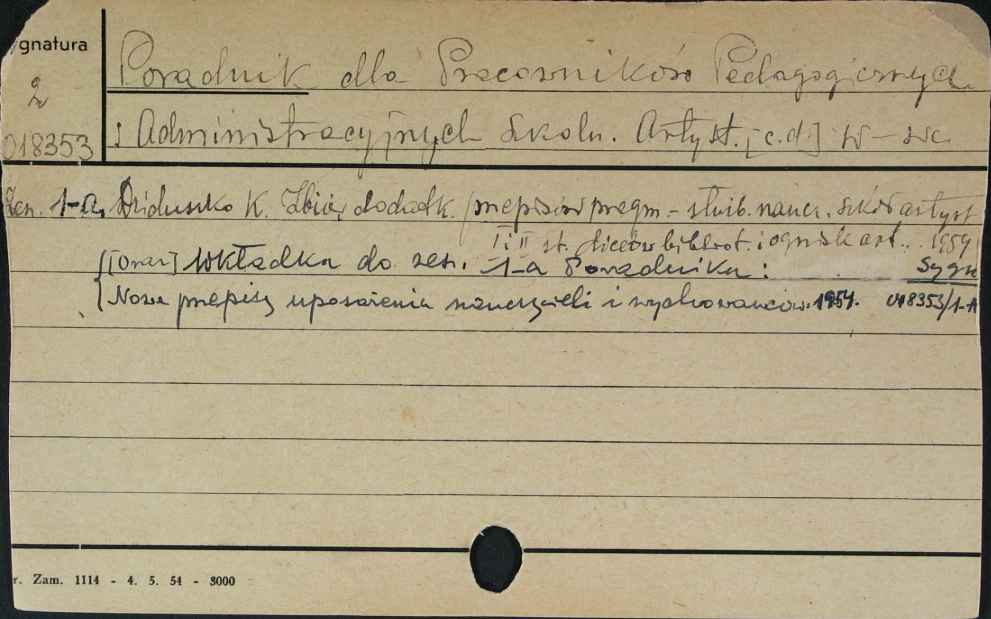 ygnatura
2
018353
Poradnik dla Pracowników Pedagogicznych
i Administracyjnych Szkoln. Artyst. [c.d.] W-wa
Zesz. 1-a, Dziduszko K. Zbiór dodatk. przepisów pragm.-służb. naucz. szkół artyst
I i II st. liceów bibliot. i ognisk art. . 1954
[Oraz] Wkładka do zesz. 1-a Poradnika: Sygn
Nowe przepisy uposażenia nauczycieli i wychowawców. 1954. 018353/1-A
r. Zam. 1114 - 4. 5. 54 - 3000